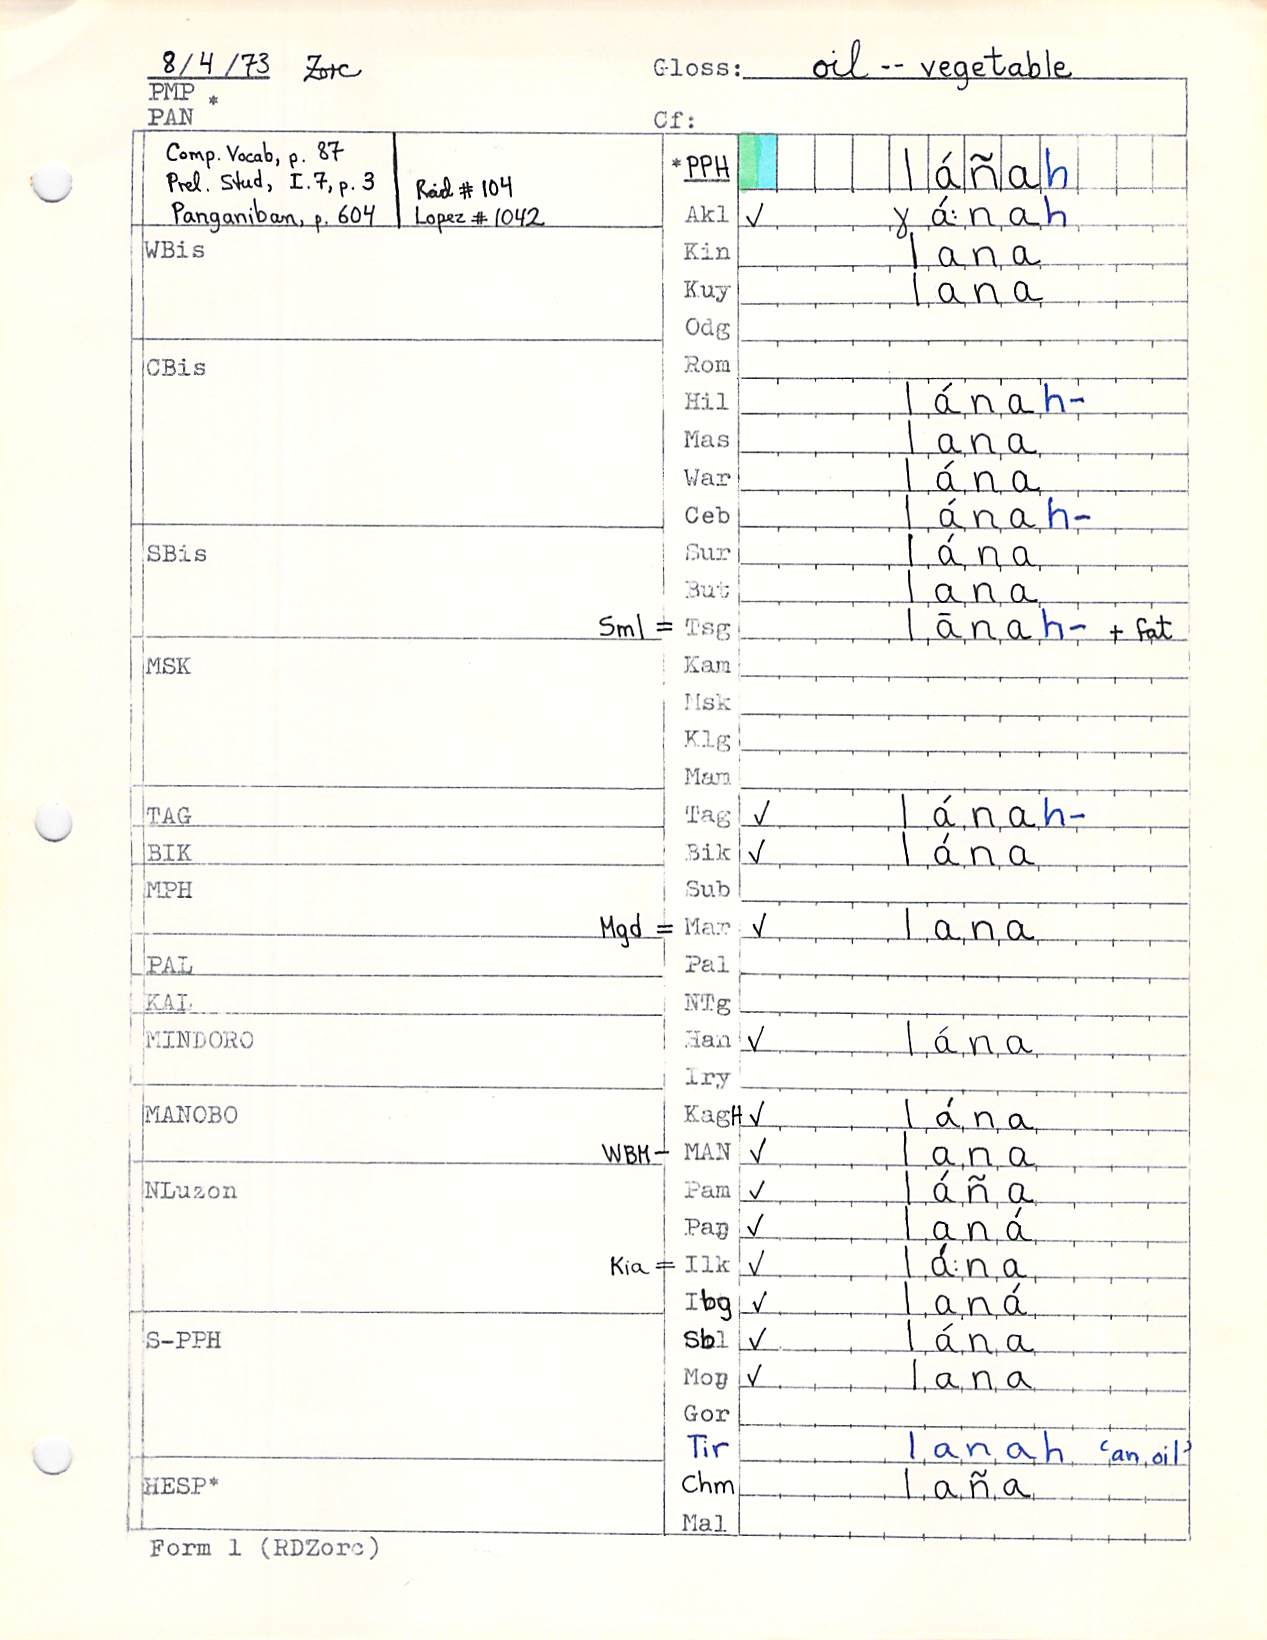 8/4/73 Zorc Gloss: oil -- vegetable
PMP *
PAN Cf:
Comp. Vocab, p. 87
Prel. Stud, I.7, p. 3 Rád # 104
Panganiban, p. 604 Lopez # 1042
*PPH láñah
Akl ✓ ɣá:nah
WBis Kin lana
Kuy lana
Odg
CBis Rom
Hil lánah-
Mas lana
War lána
Ceb lánah-
SBis Sur lána
But lana
Sml = Tsg lānah- + fat
MSK Kam
Msk
Klg
Man
TAG Tag ✓ lánah-
BIK Bik ✓ lána
MPH Sub
Mgd = Mar ✓ lana
PAL Pal
KAL NTg
MINDORO Han ✓ lána
Iry
MANOBO KagH ✓ lána
WBM - MAN ✓ lana
NLuzon Pam ✓ láña
Paŋ ✓ laná
Kia = Ilk ✓ lá:na
Ibg ✓ laná
S-PPH Sbl ✓ lána
Moŋ ✓ lana
Gor
Tir lanah ‘an oil’
HESP* Chm laña
Mal
Form 1 (RDZorc)